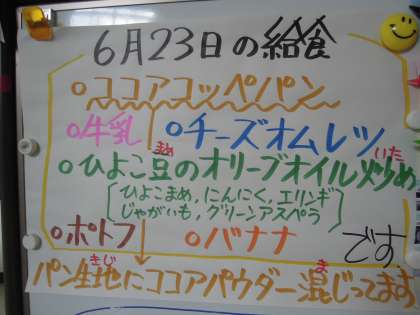 6月23日の給食
○ココアコッペパン
○牛乳 ○チーズオムレツ
○ひよこ豆のオリーブオイル炒め
まめ いた
(ひよこまめ,にんにく,エリンギ
じゃがいも,グリーンアスパラ)
○ポトフ ○バナナ です
パン生地にココアパウダー混じってます
きじ ま